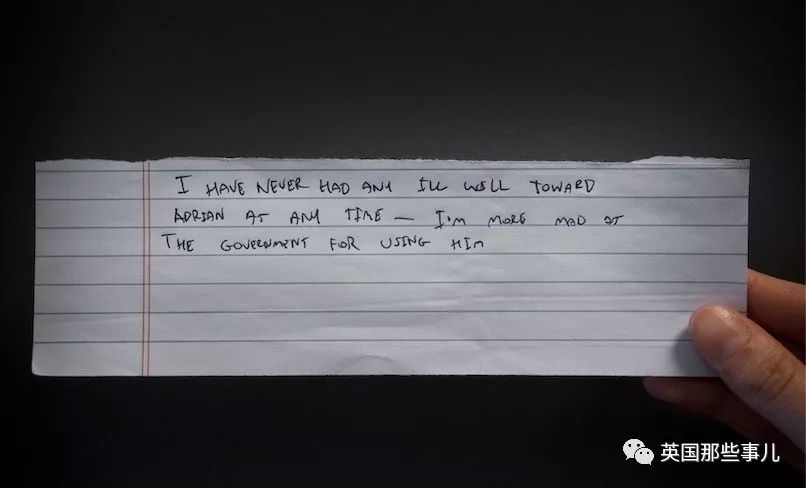 I HAVE NEVER HAD ANY ILL WILL TOWARD
ADRIAN AT ANY TIME — I'M MORE MAD AT
THE GOVERNMENT FOR USING HIM
英国那些事儿